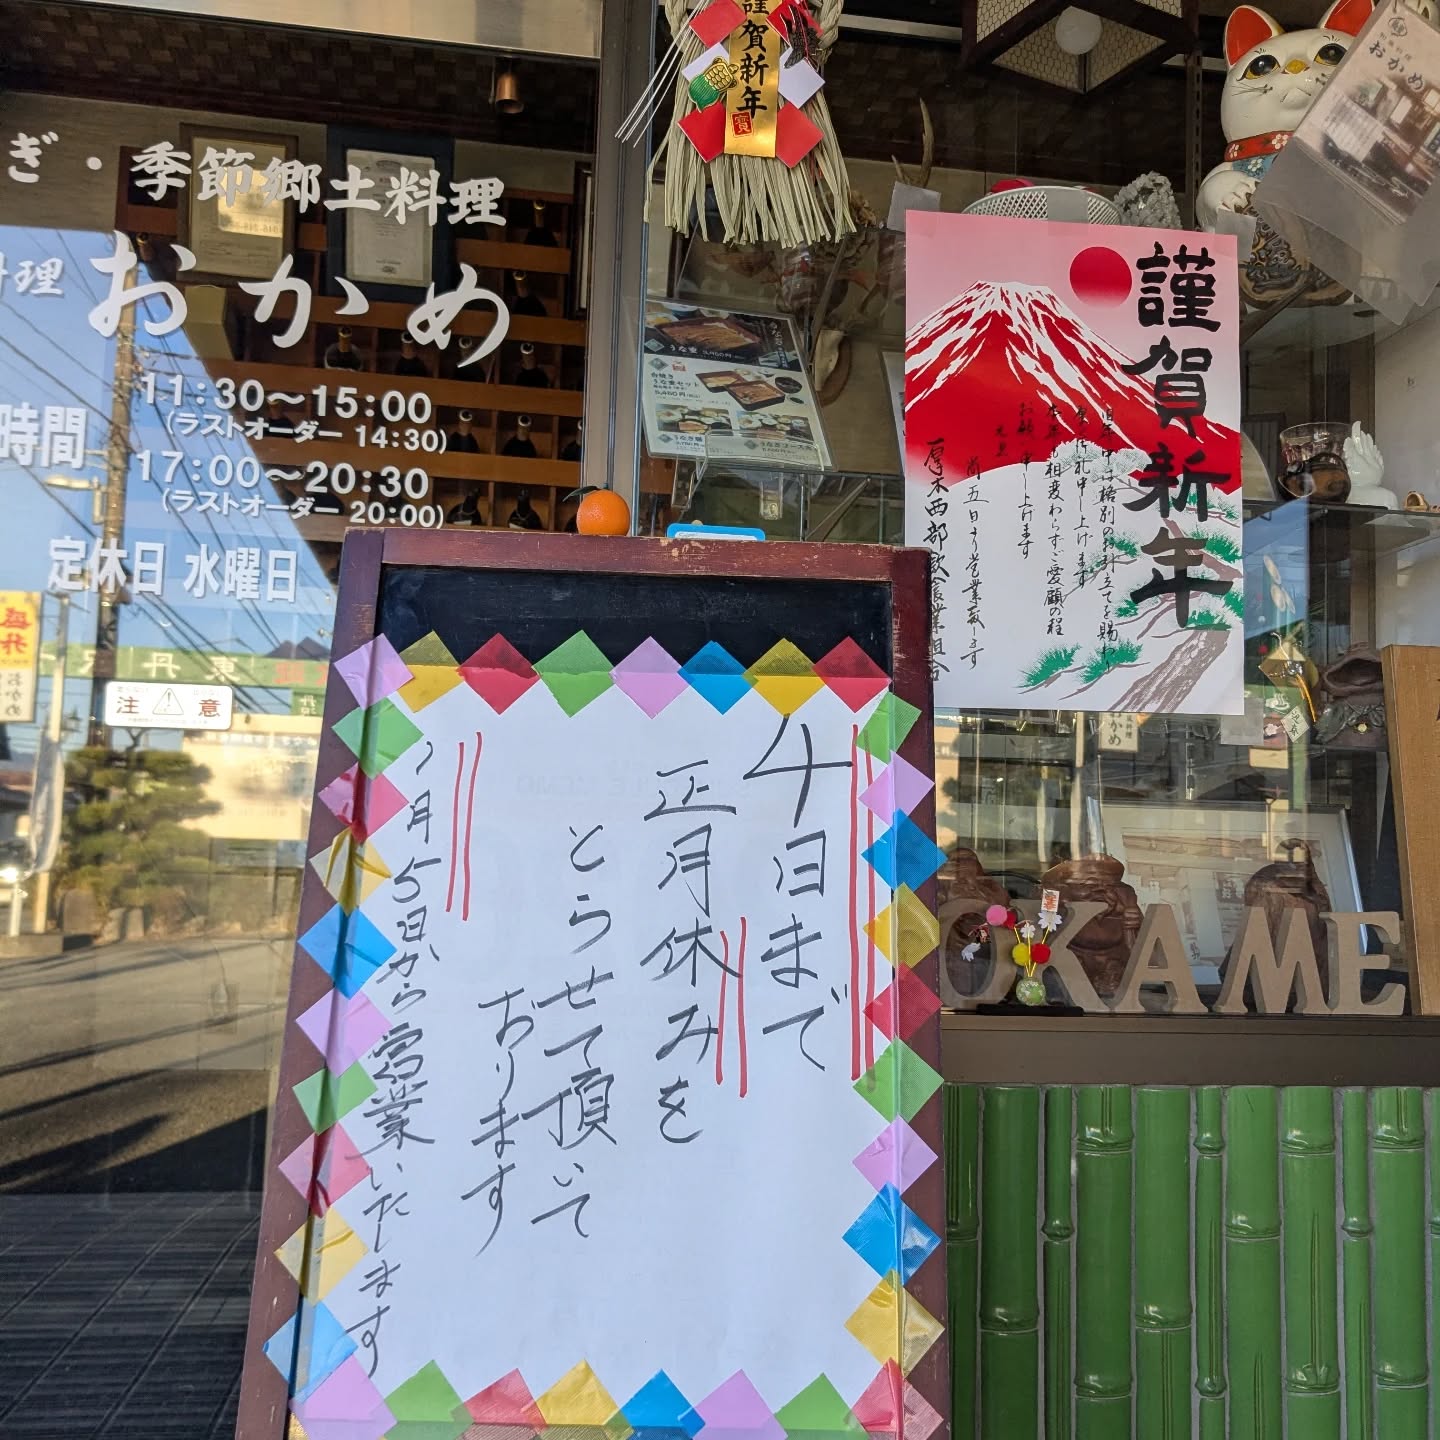 謹賀新年
ぎ・季節郷土料理
料理 おかめ
時間
11:30〜15:00
(ラストオーダー 14:30)
17:00〜20:30
(ラストオーダー 20:00)
定休日 水曜日
注意
おかめ
おかめ
うな重
うな重セット
謹賀新年
旧年中は格別のお引立てを賜わり
厚く御礼申し上げます
本年も相変わらずご愛顧の程
お願い申し上げます
元旦
尚五日より営業致します
厚木西部飲食業組合
4日まで
正月休みを
とらせて頂いて
おります
1月5日から営業いたします
OKAME